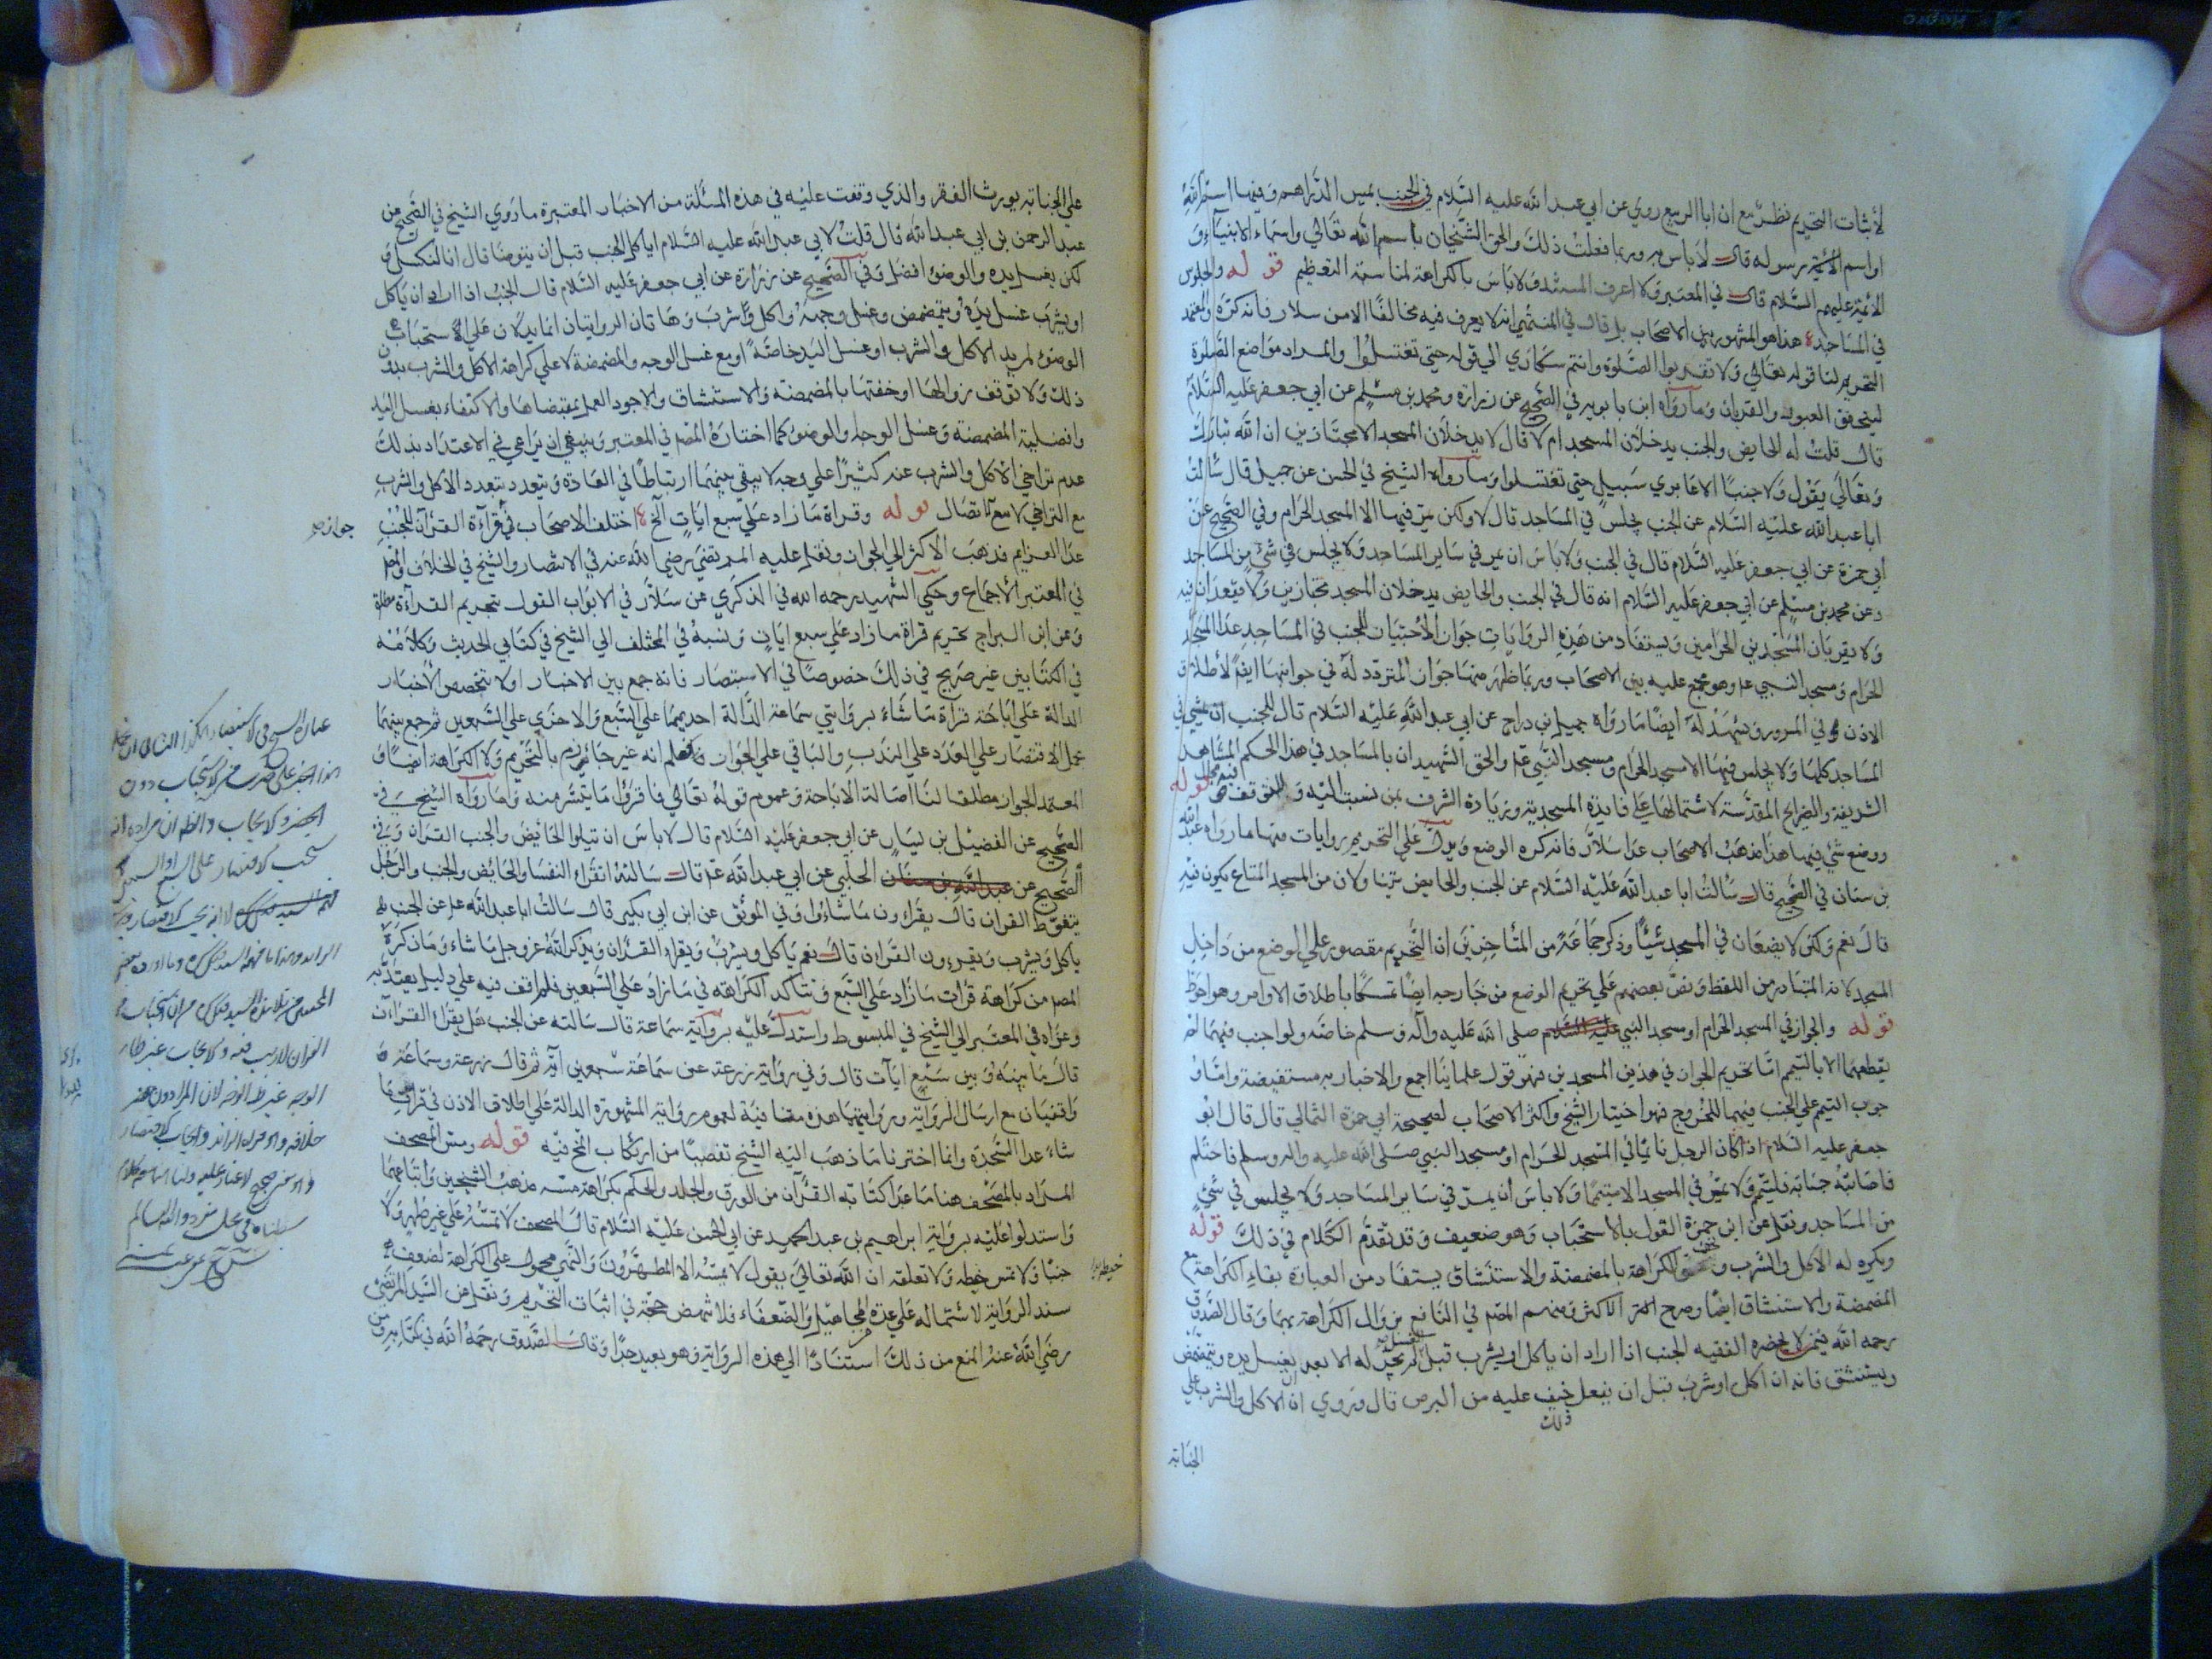 لأثبات التحريم نظر مع ان ابا الربيع روي عن ابي عبد الله عليه السلام في الجنب يمس الدراهم وفيها اسم الله
او اسم رسوله قال لا باس به وربما فعلت ذلك والحق الشيخان باسم الله تعالي واسماء الانبياء و
الائمة عليهم السلام قال في المعتبر ولا اعرف المستند ولا باس بالكراهة لمناسبة التعظيم قوله والجلوس
في المساجد هذا هو المشهور بين الاصحاب بل قال في المنتهي انه لا يعرف فيه مخالفا الا من سلار فانه كرهه والمعتمد
التحريم لنا قوله تعالي ولا تقربوا الصلوة وانتم سكاري الي قوله حتي تغتسلوا والمراد مواضع الصلوة
ليتحقق العبور والقربان وما رواه ابن بابويه في الصحيح عن زرارة ومحمد بن مسلم عن ابي جعفر عليه السلام
قال قلت له الحايض والجنب يدخلان المسجد ام لا قال لا يدخلان المسجد الا مجتازين ان الله تبارك
وتعالي يقول ولا جنبا الا عابري سبيل حتي تغتسلوا وما رواه الشيخ في الحسن عن جميل قال سألت
ابا عبد الله عليه السلام عن الجنب يجلس في المساجد قال لا ولكن يمر فيها الا المسجد الحرام وفي الصحيح عن
أبي حمزة عن ابي جعفر عليه السلام قال في الجنب ولا باس ان يمر في ساير المساجد ولا يجلس في شئ من المساجد
وعن محمد بن مسلم عن ابي جعفر عليه السلام انه قال في الجنب والحايض يدخلان المسجد مجتازين ولا يقعدان فيه
ولا يقربان المسجدين الحرامين ويستفاد من هذه الروايات جواز الأجتياز للجنب في المساجد عدا المسجد
الحرام ومسجد النبي ع وهو مجمع عليه بين الاصحاب وربما ظهر منها جواز التردد له في جوانبها ايضا لأطلاق
الاذن في المرور ويشهد له ايضا ما رواه جميل بن دراج عن ابي عبد الله عليه السلام قال للجنب ان يمشي في
المساجد كلها ولا يجلس فيها الا المسجد الحرام ومسجد النبي ع والحق الشهيدان بالمساجد في هذا الحكم المشاهد
الشريفة والضرايح المقدسة لاشتمالها علي فايدة المسجدية وزيادة الشرف بمن نسبت اليه وللتوقف فيه مجال قوله
ووضع شئ فيها هذا مذهب الاصحاب عدا سلار فانه كره الوضع ويدل علي التحريم روايات منها ما رواه عبد الله
بن سنان في الصحيح قال سألت ابا عبد الله عليه السلام عن الجنب والحايض يتناولان من المسجد المتاع يكون فيه
قال نعم ولكن لا يضعان في المسجد شيئا وذكر جماعة من المتأخرين ان التحريم مقصور علي الوضع من داخل
المسجد لانه المتبادر من اللفظ ونص بعضهم علي تحريم الوضع من خارجه ايضا تمسكا بأطلاق الاوامر وهو احوط
قوله والجواز في المسجد الحرام او مسجد النبي صلي الله عليه وآله وسلم خاصة ولو اجنب فيهما لم
يقطعهما الا بالتيمم امّا تحريم الجواز في هذين المسجدين فهو قول علمائنا اجمع والاخبار به مستفيضة وامّا و
جوب التيمم علي الجنب فيهما للخروج فهو اختيار الشيخ واكثر الاصحاب لصحيحة ابي حمزة الثمالي قال قال ابو
جعفر عليه السلام اذا كان الرجل نائما في المسجد الحرام او مسجد النبي صلي الله عليه واله وسلم فاحتلم
فاصابته جنابة فليتيمم ولا يمر في المسجد الا متيمما ولا باس أن يمر في ساير المساجد ولا يجلس في شئ
من المساجد ونقل عن ابن حمزة القول بالاستحباب وهو ضعيف وقد تقدم الكلام في ذلك قوله
ويكره له الاكل والشرب وتخف الكراهة بالمضمضة والاستنشاق يستفاد من العبارة بقاء الكراهة مع
المضمضة والاستنشاق ايضا وصرح الاكثر ومنهم المصم في النافع بزوال الكراهة بهما وقال الصدوق
رحمه الله فيمن لا يحضره الفقيه الجنب اذا اراد ان ياكل او يشرب قبل الغسل لم يجز له الا بعد ان يغسل يديه ويتمضمض
ويستنشق فانه ان اكل او شرب قبل ان يفعل ذلك خيف عليه من البرص قال وروي ان الاكل والشرب علي
الجنابة
علي الجنابة يورث الفقر والذي وقفت عليه في هذه المسئلة من الاخبار المعتبرة ما روي الشيخ في الصحيح عن
عبد الرحمن بن ابي عبد الله قال قلت لابي عبد الله عليه السلام اياكل الجنب قبل أن يتوضا قال انا لنكسل و
لكن يغسل يده والوضوء افضل وفي الصحيح عن زرارة عن ابي جعفر عليه السلام قال الجنب اذا اراد ان ياكل
او يشرب غسل يده وتمضمض وغسل وجهه واكل وشرب وهاتان الروايتان انما يدلان علي الأستحباب
الوضوء لمريد الاكل والشرب او غسل اليد خاصة او مع غسل الوجه والمضمضة لا علي كراهة الاكل والشرب بدون
ذلك ولا توقف زوالها او خفتها بالمضمضة والاستنشاق والاجود العمل بمقتضاها والاكتفاء بغسل اليد
وافضلية المضمضة وغسل الوجه والوضوء كما اختاره المصم في المعتبر وينبغي ان يراعي في الاعتداد بذلك
عدم تراخي الاكل والشرب عنه كثيرا علي وجه لا يبقي بينهما ارتباط في العادة ويتعدد بتعدد الأكل والشرب
مع التراخي لا مع الاتصال قوله وقراة ما زاد علي سبع ايات الخ اختلف الاصحاب في قراءة القرآن للجنب
جوازه
عدا العزايم فذهب الأكثر الي الجواز ونقل عليه المرتضي رضي الله عنه في الانتصار والشيخ في الخلاف والمصم
في المعتبر الأجماع وحكي الشهيد رحمه الله في الذكري عن سلار في الابواب القول بتحريم القراءة مطلقا
وعن ابن البراج تحريم قراة ما زاد علي سبع ايات ونسبه في المختلف الي الشيخ في كتابي الحديث وكلامه
في الكتابين غير صريح في ذلك خصوصا في الاستبصار فانه جمع بين الاخبار اولا بتخصيص الأخبار
الدالة علي اباحة قراة ما شاء بروايتي سماعة الدالة احديهما علي السبع والاخري علي السبعين ثم جمع بينهما
بحمل الاقتصار علي العدد علي الندب والباقي علي الجواز فعلم انه غير جازم بالتحريم ولا الكراهة ايضا و
المعتمد الجواز مطلقا لنا اصالة الأباحة وعموم قوله تعالي فاقرؤا ما تيسر منه وما رواه الشيخ في
الصحيح عن الفضيل بن يسار عن ابي جعفر عليه السلام قال لا باس ان تتلوا الحائض والجنب القران وفي
الصحيح عن عبد الله بن سنان الحلبي عن ابي عبد الله ع قال سالته اتقراء النفساء والحايض والجنب والرجل
يتغوط القران قال يقراون ما شاؤا وفي الموثق عن ابن ابي بكير قال سالت ابا عبد الله ع عن الجنب
ياكل ويشرب ويقرء القران قال نعم ياكل ويشرب ويقراء القران ويذكر الله عز وجل ما شاء وما ذكره
المصم من كراهة قرات ما زاد علي السبع وتتاكد الكراهة في ما زاد علي السبعين فلم اقف فيه علي دليل يعتد به
وعزاه في المعتبر الي الشيخ في المبسوط واستدل عليه برواية سماعة قال سالته عن الجنب هل يقراء القرآن
قال ما بينه وبين سبع ايات قال وفي رواية زرعة عن سماعة سبعين آية ثم قال زرعة وسماعة
واقفيان مع ارسال الرواية وروايتهما هذه منافية لعموم رواية المشهورة الدالة علي اطلاق الاذن في قراءة ما
شاء عدا السجدة وانما اخترنا ما ذهب اليه الشيخ تفصيا من ارتكاب المختلف فيه قوله ومس المصحف
المراد بالمصحف هنا ما عدا كتابة القرآن من الورق والجلد والحكم بكراهة مسه مذهب الشيخين واتباعهما
واستدلوا عليه برواية ابراهيم بن عبد الحميد عن ابي الحسن عليه السلام قال المصحف لا تمسه علي غير طهر ولا
جنبا ولا تمس خيطه ولا تعلقه ان الله تعالي يقول لا يمسه الا المطهرون والنهي محمول علي الكراهة لضعف
سند الرواية لاشتماله علي عدة المجاهيل والضعفاء فلا تنهض حجة في اثبات التحريم ونقل عن السيد المرتضي
رضي الله عنه المنع من ذلك استنادا الي هذه الرواية وهو بعيد جدا وقال الصدوق رحمه الله في كتابه ومن